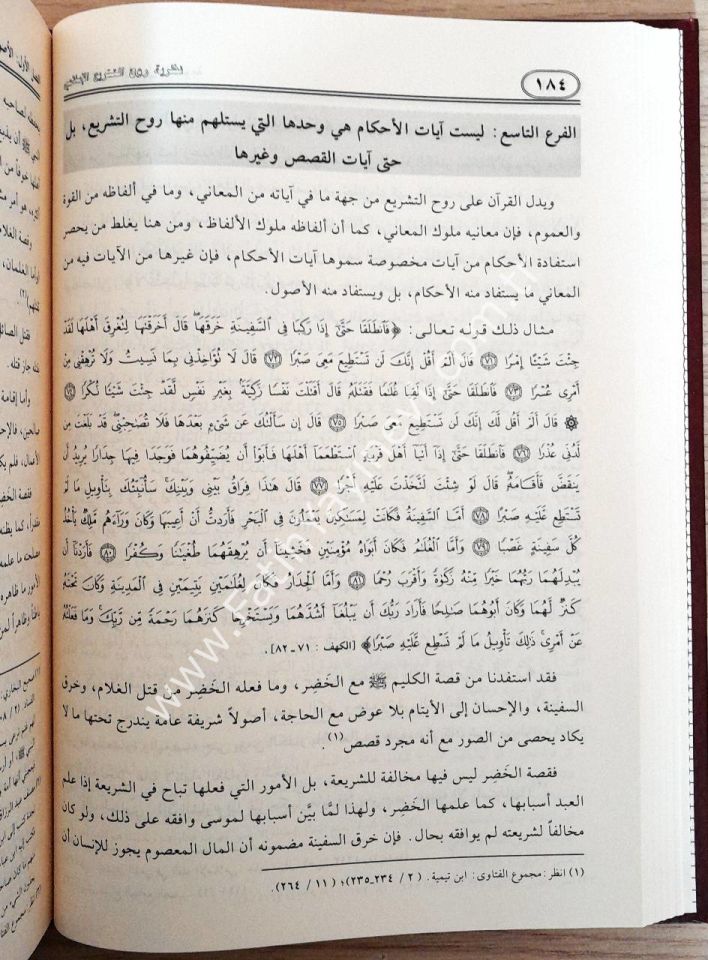 ١٨٤
نظرية روح التشريع الإسلامي
الفرع التاسع: ليست آيات الأحكام هي وحدها التي يستلهم منها روح التشريع، بل
حتى آيات القصص وغيرها
ويدل القرآن على روح التشريع من جهة ما في آياته من المعاني، وما في ألفاظه من القوة
والعموم، فإن معانيه ملوك المعاني، كما أن ألفاظه ملوك الألفاظ، ومن هنا يغلط من يحصر
استفادة الأحكام من آيات مخصوصة سموها آيات الأحكام، فإن غيرها من الآيات فيه من
المعاني ما يستفاد منه الأحكام، بل ويستفاد منه الأصول.
مثال ذلك قوله تعالى: ﴿فَٱنطَلَقَا حَتَّىٰٓ إِذَا رَكِبَا فِي ٱلسَّفِينَةِ خَرَقَهَا ۖ قَالَ أَخَرَقْتَهَا لِتُغْرِقَ أَهْلَهَا لَقَدْ
جِئْتَ شَيْـًٔا إِمْرًا ۝٧١ قَالَ أَلَمْ أَقُلْ إِنَّكَ لَن تَسْتَطِيعَ مَعِىَ صَبْرًا ۝٧٢ قَالَ لَا تُؤَاخِذْنِى بِمَا نَسِيتُ وَلَا تُرْهِقْنِى مِنْ
أَمْرِى عُسْرًا ۝٧٣ فَٱنطَلَقَا حَتَّىٰٓ إِذَا لَقِيَا غُلَٰمًا فَقَتَلَهُۥ قَالَ أَقَتَلْتَ نَفْسًا زَكِيَّةًۢ بِغَيْرِ نَفْسٍ لَّقَدْ جِئْتَ شَيْـًٔا نُّكْرًا ۝٧٤
۞ قَالَ أَلَمْ أَقُل لَّكَ إِنَّكَ لَن تَسْتَطِيعَ مَعِىَ صَبْرًا ۝٧٥ قَالَ إِن سَأَلْتُكَ عَن شَىْءٍۭ بَعْدَهَا فَلَا تُصَٰحِبْنِى ۖ قَدْ بَلَغْتَ مِن
لَّدُنِّى عُذْرًا ۝٧٦ فَٱنطَلَقَا حَتَّىٰٓ إِذَآ أَتَيَآ أَهْلَ قَرْيَةٍ ٱسْتَطْعَمَآ أَهْلَهَا فَأَبَوْا۟ أَن يُضَيِّفُوهُمَا فَوَجَدَا فِيهَا جِدَارًا يُرِيدُ أَن
يَنقَضَّ فَأَقَامَهُۥ ۖ قَالَ لَوْ شِئْتَ لَتَّخَذْتَ عَلَيْهِ أَجْرًا ۝٧٧ قَالَ هَٰذَا فِرَاقُ بَيْنِى وَبَيْنِكَ ۚ سَأُنَبِّئُكَ بِتَأْوِيلِ مَا لَمْ
تَسْتَطِع عَّلَيْهِ صَبْرًا ۝٧٨ أَمَّا ٱلسَّفِينَةُ فَكَانَتْ لِمَسَٰكِينَ يَعْمَلُونَ فِى ٱلْبَحْرِ فَأَرَدتُّ أَنْ أَعِيبَهَا وَكَانَ وَرَآءَهُم مَّلِكٌ يَأْخُذُ
كُلَّ سَفِينَةٍ غَصْبًا ۝٧٩ وَأَمَّا ٱلْغُلَٰمُ فَكَانَ أَبَوَاهُ مُؤْمِنَيْنِ فَخَشِينَآ أَن يُرْهِقَهُمَا طُغْيَٰنًا وَكُفْرًا ۝٨٠ فَأَرَدْنَآ أَن
يُبْدِلَهُمَا رَبُّهُمَا خَيْرًا مِّنْهُ زَكَوٰةً وَأَقْرَبَ رُحْمًا ۝٨١ وَأَمَّا ٱلْجِدَارُ فَكَانَ لِغُلَٰمَيْنِ يَتِيمَيْنِ فِى ٱلْمَدِينَةِ وَكَانَ تَحْتَهُۥ
كَنزٌ لَّهُمَا وَكَانَ أَبُوهُمَا صَٰلِحًا فَأَرَادَ رَبُّكَ أَن يَبْلُغَآ أَشُدَّهُمَا وَيَسْتَخْرِجَا كَنزَهُمَا رَحْمَةً مِّن رَّبِّكَ ۚ وَمَا فَعَلْتُهُۥ
عَنْ أَمْرِى ۚ ذَٰلِكَ تَأْوِيلُ مَا لَمْ تَسْطِع عَّلَيْهِ صَبْرًا﴾ [الكهف: ٧١-٨٢].
فقد استفدنا من قصة الكليم ﷺ مع الخَضِر، وما فعله الخَضِر من قتل الغلام، وخرق
السفينة، والإحسان إلى الأيتام بلا عوض مع الحاجة، أصولاً شريفة عامة يندرج تحتها ما لا
يكاد يحصى من الصور مع أنه مجرد قصص(١).
فقصة الخَضِر ليس فيها مخالفة للشريعة، بل الأمور التي فعلها تباح في الشريعة إذا علم
العبد أسبابها، كما علمها الخَضِر، ولهذا لمَّا بيَّن أسبابها لموسى وافقه على ذلك، ولو كان
مخالفاً لشريعته لم يوافقه بحال. فإن خرق السفينة مضمونه أن المال المعصوم يجوز للإنسان أن
(١) انظر: مجموع الفتاوى: ابن تيمية. (٢ / ٢٣٤-٢٣٥)؛ (١١ / ٢٦٤).